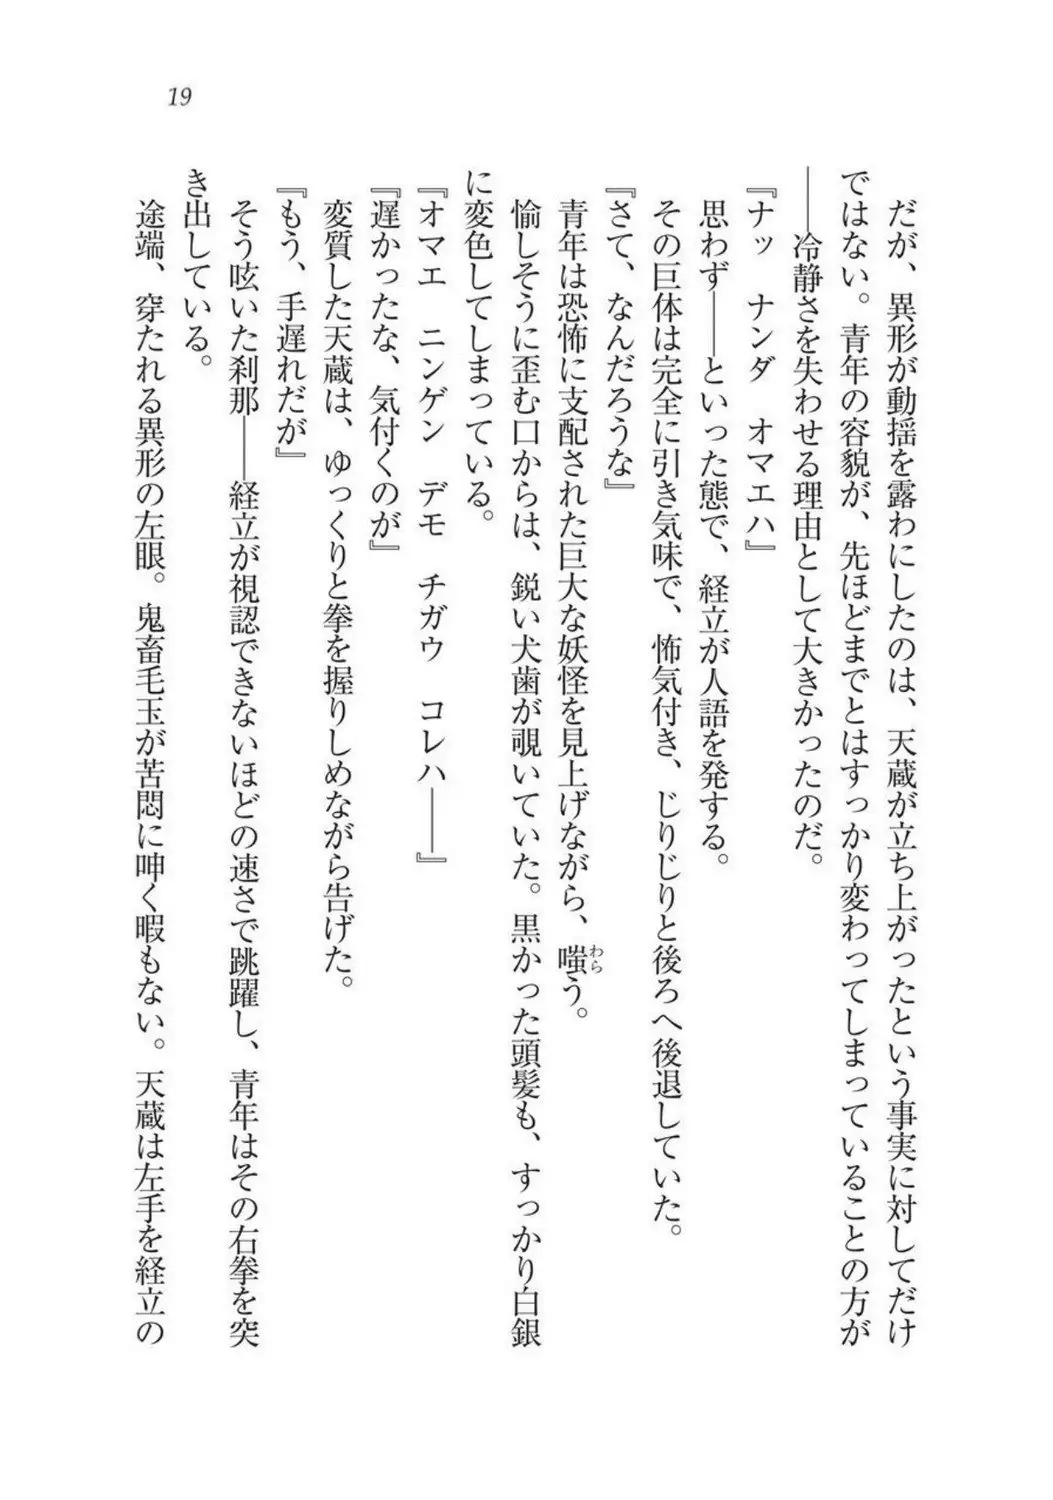 19
だが、異形が動揺を露わにしたのは、天蔵が立ち上がったという事実に対してだけ
ではない。青年の容貌が、先ほどまでとはすっかり変わってしまっていることの方が
――冷静さを失わせる理由として大きかったのだ。
『ナッ　ナンダ　オマエハ』
思わず――といった態で、経立が人語を発する。
その巨体は完全に引き気味で、怖気付き、じりじりと後ろへ後退していた。
『さて、なんだろうな』
青年は恐怖に支配された巨大な妖怪を見上げながら、嗤わらう。
愉しそうに歪む口からは、鋭い犬歯が覗いていた。黒かった頭髪も、すっかり白銀
に変色してしまっている。
『オマエ　ニンゲン　デモ　チガウ　コレハ――』
『遅かったな、気付くのが』
変質した天蔵は、ゆっくりと拳を握りしめながら告げた。
『もう、手遅れだが』
そう呟いた刹那――経立が視認できないほどの速さで跳躍し、青年はその右拳を突
き出している。
途端、穿たれる異形の左眼。鬼畜毛玉が苦悶に呻く暇もない。天蔵は左手を経立の